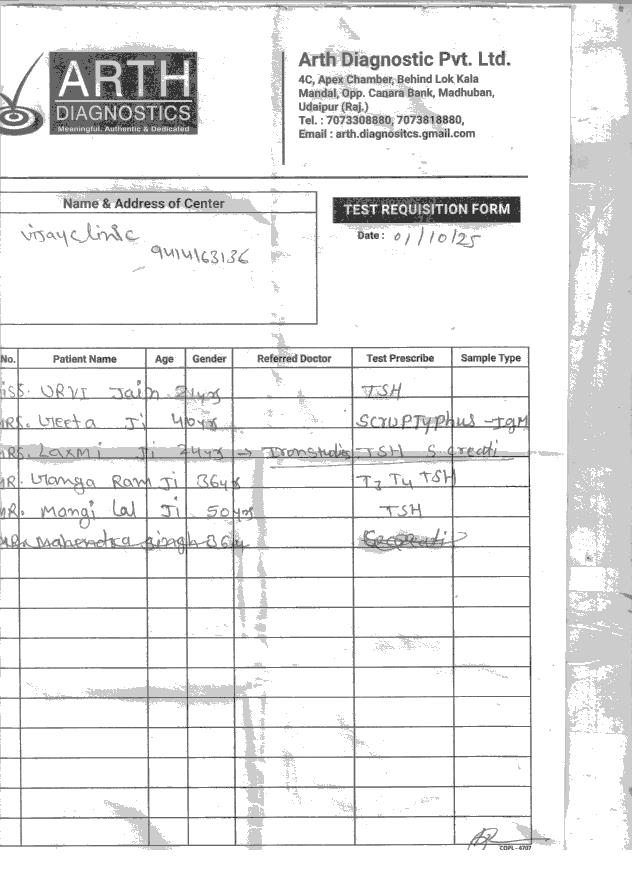 ARTH
DIAGNOSTICS
Meaningful, Authentic & Dedicated
Arth Diagnostic Pvt. Ltd.
4C, Apex Chamber, Behind Lok Kala
Mandal, Opp. Canara Bank, Madhuban,
Udaipur (Raj.)
Tel. : 7073308880, 7073818880,
Email : arth.diagnositcs.gmail.com
Name & Address of Center
vijay clinic
9414163136
TEST REQUISITION FORM
Date : 01/10/25
No. Patient Name Age Gender Referred Doctor Test Prescribe Sample Type
iss. URVI Jain 21yrs TSH
MRS. Geeta Ji 40yrs SCRUPTyphus - IgM
MRS. Laxmi Ji 24yrs → Iron studies TSH S creati
MR. Ganga Ram Ji 36yrs T3 T4 TSH
MR. Mangi Lal Ji 50yrs TSH
MR. Mahendra singh 36
COPL - 4707